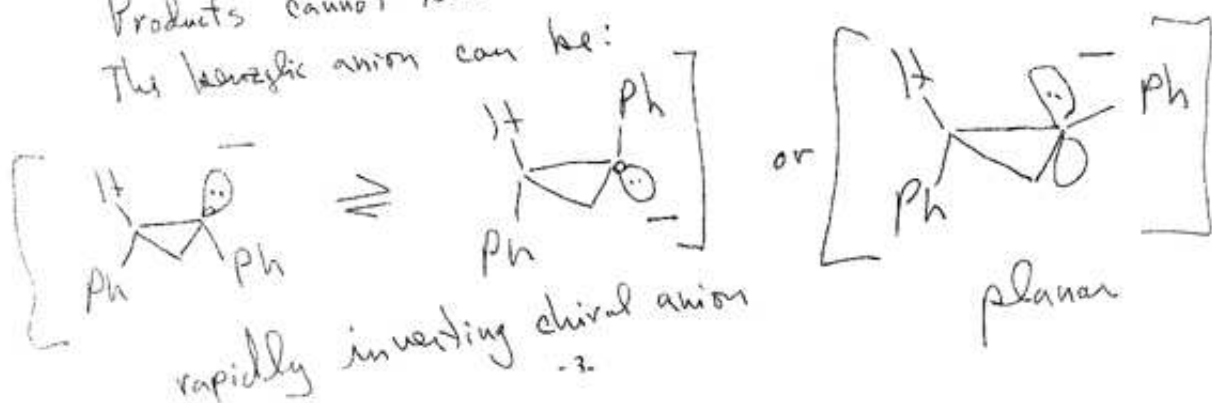 Products cannot
The benzylic anion can be:
H Ph H
Ph Ph ⇌ Ph or Ph Ph
rapidly inverting chiral anion
planar
-3-